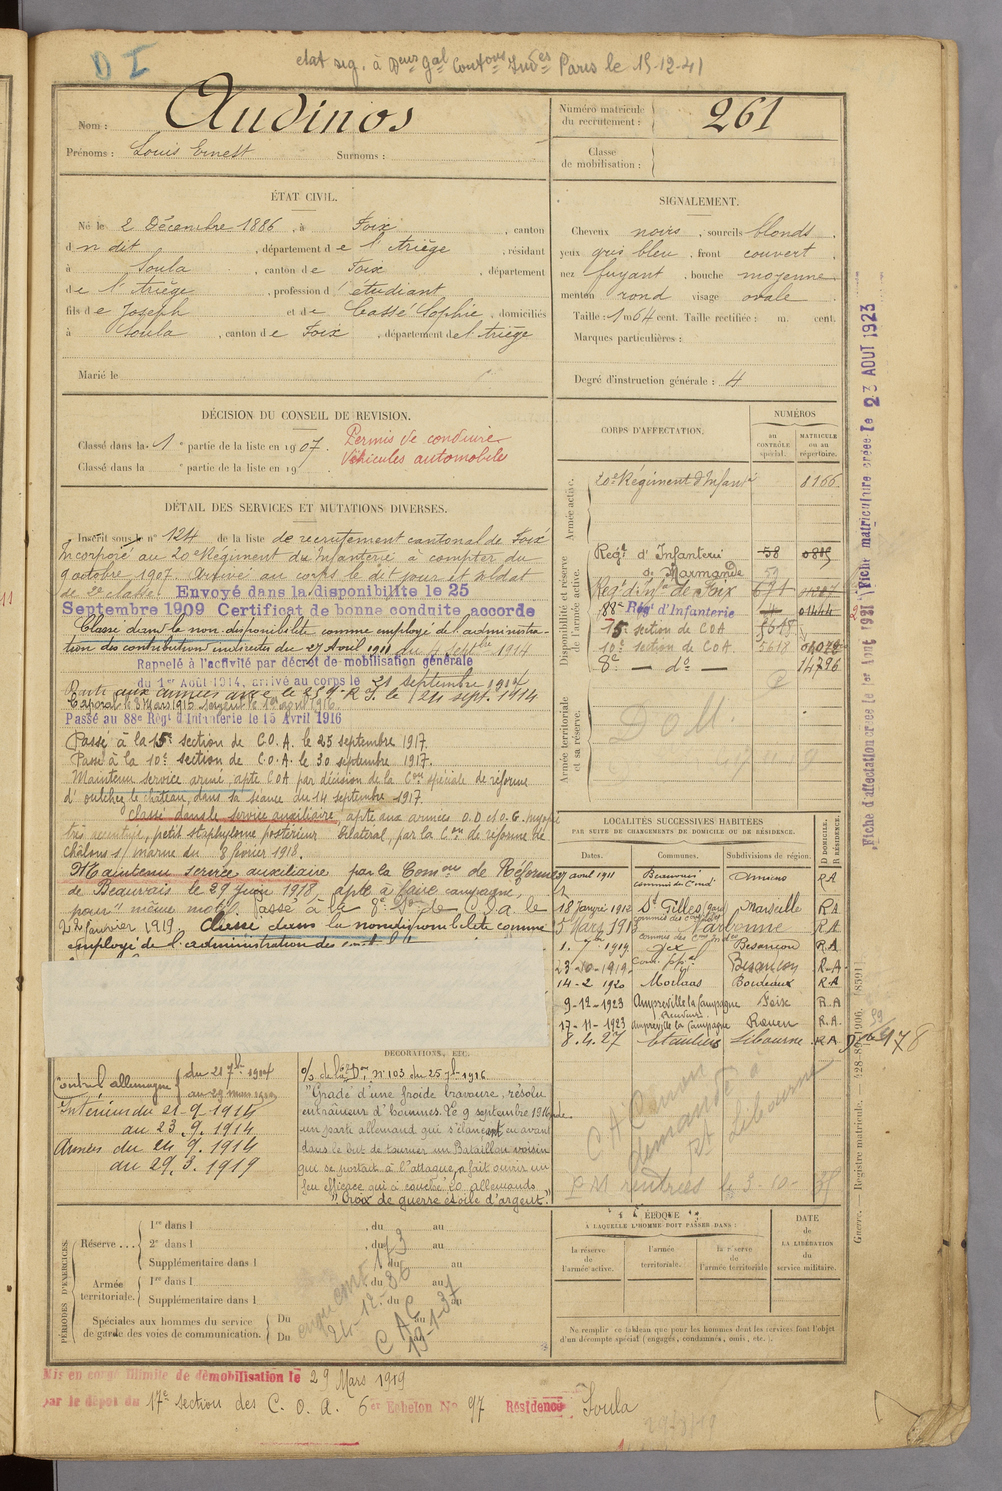 D I
etat sig. à Paris le 15-12-41
Nom : Audinos
Prénoms : Louis Ernest Surnoms :
Numéro matricule du recrutement : 261
Classe de mobilisation :
ÉTAT CIVIL.
Né le 2 Décembre 1886, à Foix, canton
dudit, département de l'Ariège, résidant
à Soula, canton de Foix, département
de l'Ariège, profession d'étudiant
fils de Joseph et de Cassé Sophie, domiciliés
à Soula, canton de Foix, département de l'Ariège
Marié le
SIGNALEMENT.
Cheveux noirs, sourcils blonds
yeux gris bleu, front couvert
nez fuyant, bouche moyenne
menton rond visage ovale
Taille : 1 m 64 cent. Taille rectifiée : m. cent.
Marques particulières :
Degré d'instruction générale : 4
DÉCISION DU CONSEIL DE REVISION.
Classé dans la 1e partie de la liste en 1907.
Classé dans la e partie de la liste en 19
Permis de conduire
Véhicules automobile
DÉTAIL DES SERVICES ET MUTATIONS DIVERSES.
Inscrit sous le n° 124 de la liste de recrutement cantonal de Foix
Incorporé au 20e Régiment du Infanterie à compter du
9 octobre 1907. Arrivé au corps le dit jour et soldat
de 2e classe. Envoyé dans la disponibilité le 25
Septembre 1909 Certificat de bonne conduite accordé
Classé dans la non disponibilité comme employé de l'administra-
tion des contributions indirectes du 27 Avril 1911 du 4 Septbre 1914
Rappelé à l'activité par décret de mobilisation générale
du 1er Août 1914, arrivé au corps le 21 septembre 1914
Parti aux armées avec le 259e R.I. le 24 sept. 1914
Caporal le 3 Mars 1915 sergent le 1er avril 1916
Passé au 88e Régt d'Infanterie le 15 Avril 1916
Passé à la 15e section de C.O.A. le 25 septembre 1917.
Passé à la 10e section de C.O.A. le 30 septembre 1917.
Maintenu service armé, apte C.O.A par décision de la Con spéciale de réforme
d'oulchy le château, dans sa séance du 14 septembre 1917.
Classé dans le service auxiliaire, apte aux armées O.D et O.G. myopie
très accentuée, petit staphylome postérieur bilatéral, par la Con de réforme de
Châlons s/ Marne du 8 février 1918.
Maintenu service auxiliaire par la Comon de Réforme
de Beauvais le 29 Juin 1918, apte à faire campagne,
pour même motif. Passé à la 8e Son de C.O.A. le
22 janvier 1919. Classé dans la non disponibilité comme
employé de l'administration des
CORPS D'AFFECTATION.
NUMÉROS
au CONTRÔLE spécial.
MATRICULE ou au répertoire.
Armée active.
20e Régiment d'Infanie 8166
Disponibilité et réserve de l'armée active.
Régt d'Infanterie 58 0815
de Marmande 59
Regt d'Infie de Foix 671
88e Régt d'Infanterie 01444
15e section de COA 5618
10e section de COA. 5618 04072
8e — do — 14796
Armée territoriale et sa réserve.
D O M.
LOCALITÉS SUCCESSIVES HABITÉES
PAR SUITE DE CHANGEMENTS DE DOMICILE OU DE RÉSIDENCE.
Dates. Communes. Subdivisions de région. D DOMICILE. R RÉSIDENCE.
27 avril 1911 Beauvais Amiens R A
18 Janvier 1912 St Gilles (Gard) Marseille R A
5 Mars 1913 Narbonne R A
1. 7bre 1914 Gex Besançon R A
23-10-1919 Besançon R-A
14-2-1920 Morlaas Bordeaux R.A
9-12-1923 Ampreville la Campagne Foix R.A
17-11-1923 Ampreville la Campagne Rouen R.A.
8.4.27 Etauliers Libourne RA
DÉCORATIONS, ETC.
Contre l'allemagne du 21 7bre 1914
au 29 mars 1919
Intérieur du 21.9.1914
au 23.9.1914
Armées du 24.9.1914
au 29.3.1919
O/ de la Don N° 103 du 25 7bre 1916
"Gradé d'une froide bravoure, résolu
entraineur d'hommes. Le 9 septembre 1916
un parti allemand qui s'élançant en avant
dans le but de tourner un Bataillon voisin
qui se portait à l'attaque, a fait ouvrir un
feu efficace qui a couché 20 allemands
"Croix de guerre étoile d'argent."
CA Canon
demandé à
Libourne
PM rentrées le 3-10-35
PÉRIODES D'EXERCICES.
Réserve . . .
1re dans l , du au
2e dans l , du au
Supplémentaire dans l , du au
Armée territoriale.
1re dans l , du au
Supplémentaire dans l , du au
Spéciales aux hommes du service de garde des voies de communication.
Du au
Du au
173
24-12-36
C A C
19-1-37
ÉPOQUE
À LAQUELLE L'HOMME DOIT PASSER DANS :
la réserve de l'armée active.
l'armée territoriale.
la réserve de l'armée territoriale
DATE de LA LIBÉRATION du service militaire.
Ne remplir ce tableau que pour les hommes dont les services font l'objet
d'un décompte spécial (engagés, condamnés, omis, etc.).
Mis en congé illimité de démobilisation le 29 Mars 1919
par le dépôt du 17e section des C.O.A. 6er Echelon No 97 Résidence Soula
Fiche d'affectation créée le 1er Août 1921 Fiche matriculaire créée le 23 AOUT 1923
Guerre. — Registre matricule. — 428-89-1906. [8591]